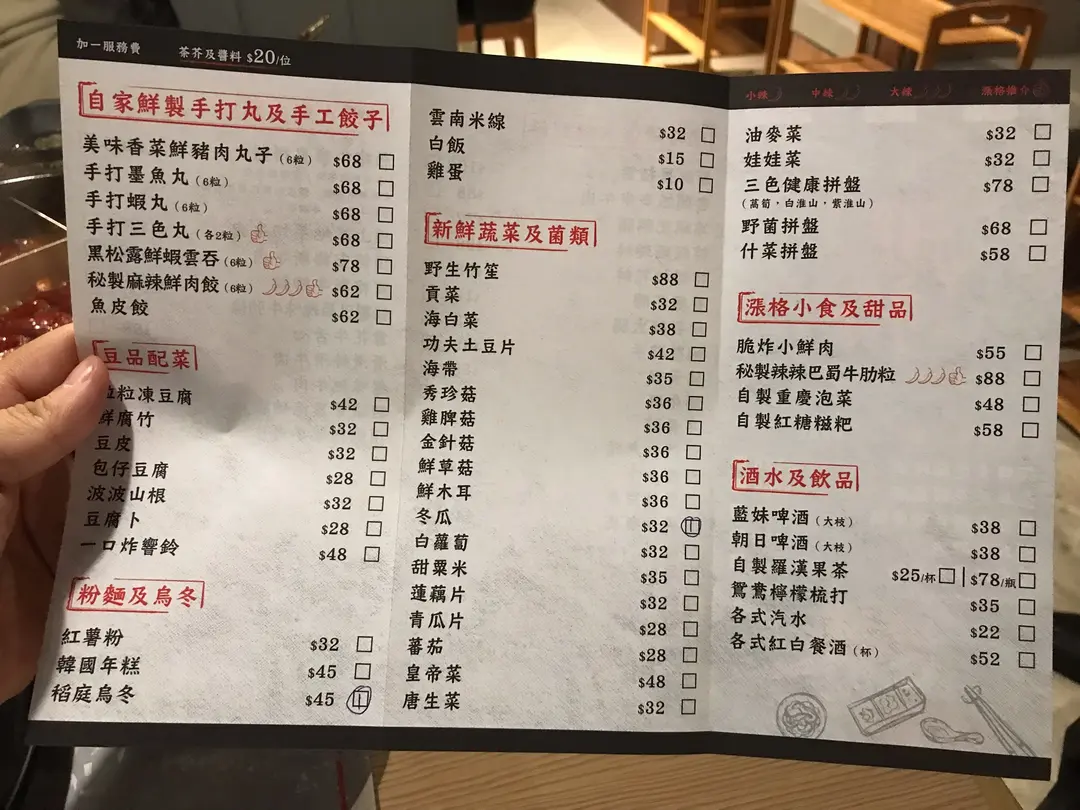 加一服務費 茶芥及醬料 $20/位
自家鮮製手打丸及手工餃子
美味香菜鮮豬肉丸子(6粒) $68
手打墨魚丸(6粒) $68
手打蝦丸(6粒) $68
手打三色丸(各2粒) $68
黑松露鮮蝦雲吞(6粒) $78
秘製麻辣鮮肉餃(6粒) $62
魚皮餃 $62
豆品配菜
粒凍豆腐 $42
鮮腐竹 $32
豆皮 $32
包仔豆腐 $28
波波山根 $32
豆腐卜 $28
一口炸響鈴 $48
粉麵及烏冬
紅薯粉 $32
韓國年糕 $45
稻庭烏冬 $45
雲南米線 $32
白飯 $15
雞蛋 $10
新鮮蔬菜及菌類
野生竹笙 $88
貢菜 $32
海白菜 $38
功夫土豆片 $42
海帶 $35
秀珍菇 $36
雞脾菇 $36
金針菇 $36
鮮草菇 $36
鮮木耳 $36
冬瓜 $32
白蘿蔔 $32
甜粟米 $35
蓮藕片 $32
青瓜片 $28
蕃茄 $28
皇帝菜 $48
唐生菜 $32
小辣 中辣 大辣 漲格推介
油麥菜 $32
娃娃菜 $32
三色健康拼盤 $78
(萵筍，白淮山，紫淮山)
野菌拼盤 $68
什菜拼盤 $58
漲格小食及甜品
脆炸小鮮肉 $55
秘製辣辣巴蜀牛肋粒 $88
自製重慶泡菜 $48
自製紅糖糍粑 $58
酒水及飲品
藍妹啤酒(大枝) $38
朝日啤酒(大枝) $38
自製羅漢果茶 $25/杯 | $78/瓶
鴛鴦檸檬梳打 $35
各式汽水 $22
各式紅白餐酒(杯) $52